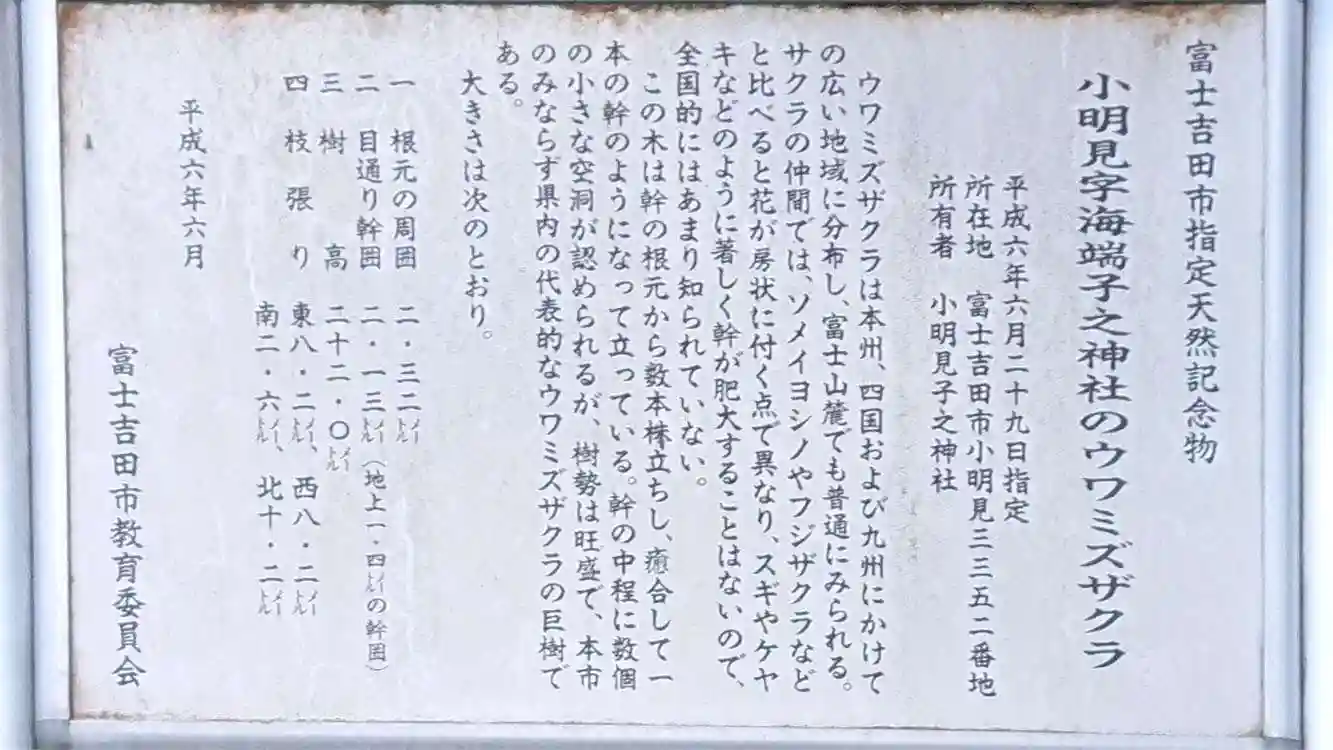 富士吉田市指定天然記念物
小明見字海端子之神社のウワミズザクラ
平成六年六月二十九日指定
所在地 富士吉田市小明見三三五二番地
所有者 小明見子之神社
ウワミズザクラは本州、四国および九州にかけて
の広い地域に分布し、富士山麓でも普通にみられる。
サクラの仲間では、ソメイヨシノやフジザクラなど
と比べると花が房状に付く点で異なり、スギやケヤ
キなどのように著しく幹が肥大することはないので、
全国的にはあまり知られていない。
この木は幹の根元から数本株立ちし、癒合して一
本の幹のようになって立っている。幹の中程に数個
の小さな空洞が認められるが、樹勢は旺盛で、本市
のみならず県内の代表的なウワミズザクラの巨樹で
ある。
大きさは次のとおり。
一 根元の周囲 二・三二メートル
二 目通り幹囲 二・一三メートル(地上一・四メートルの幹囲)
三 樹高 二十二・〇メートル
四 枝張り 東八・二メートル、西八・二メートル
南二・六メートル、北十・二メートル
平成六年六月
富士吉田市教育委員会